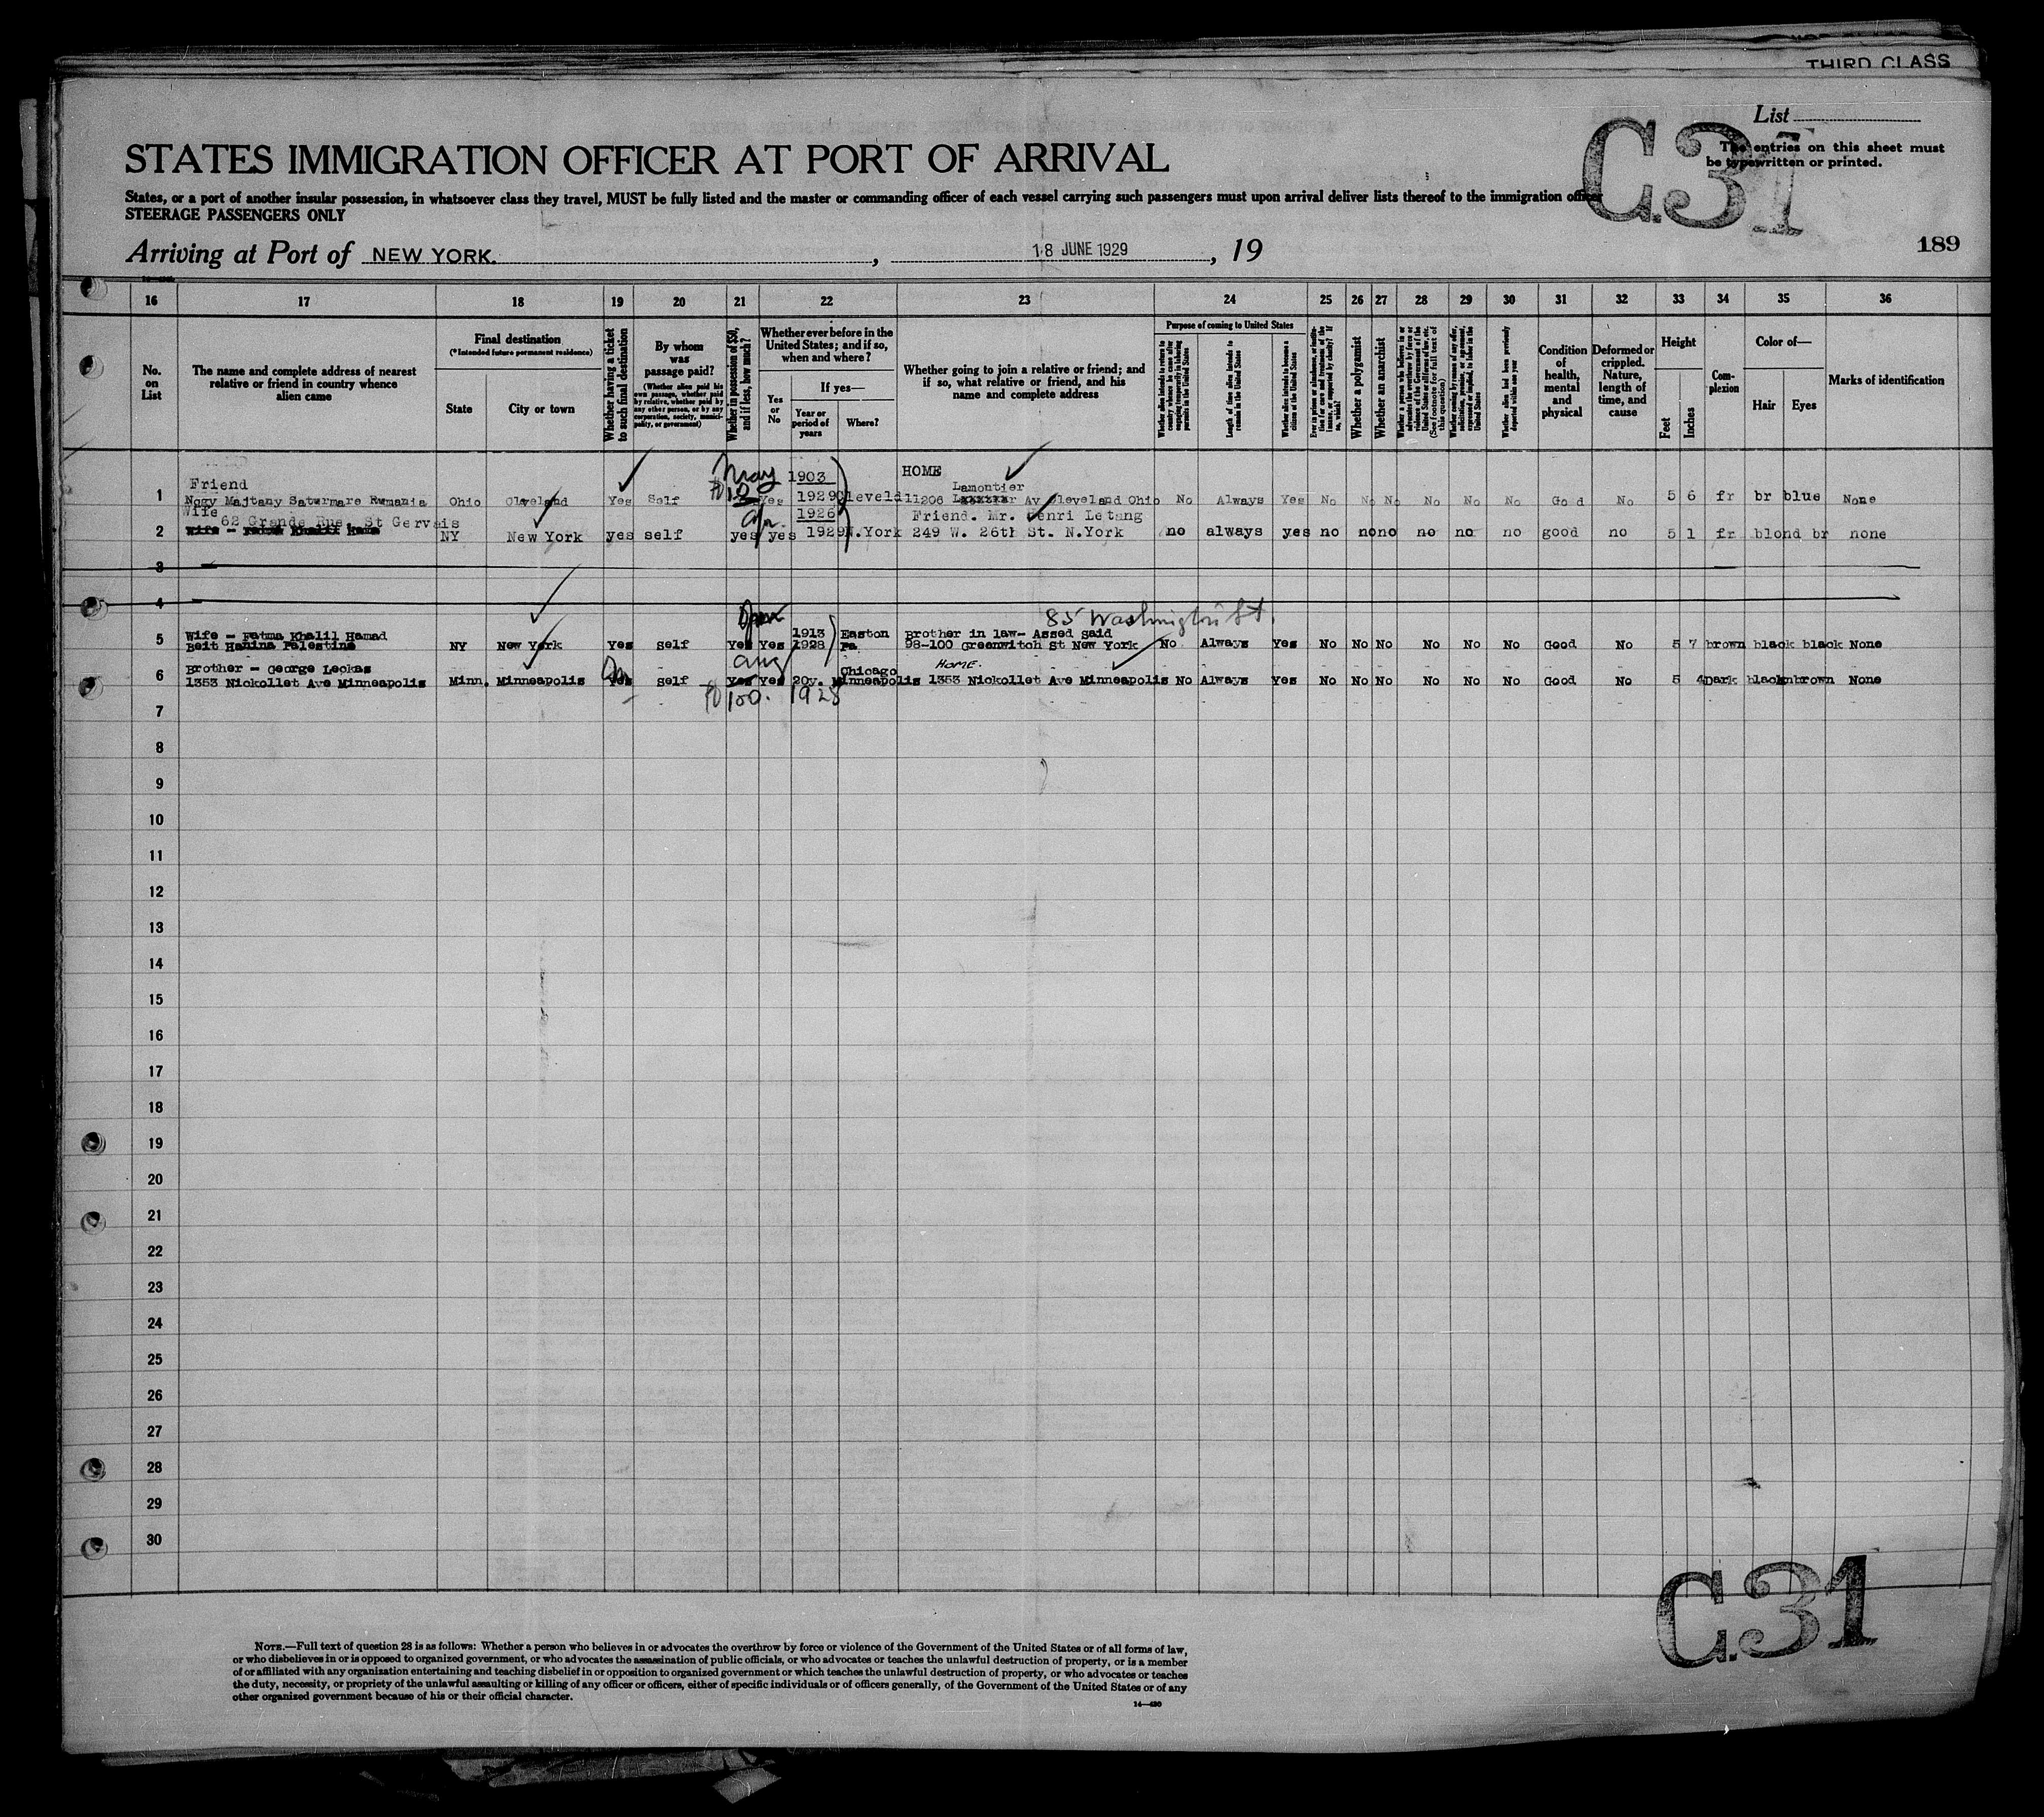 THIRD CLASS
List
C.31
The entries on this sheet must
be typewritten or printed.
STATES IMMIGRATION OFFICER AT PORT OF ARRIVAL
States, or a port of another insular possession, in whatsoever class they travel, MUST be fully listed and the master or commanding officer of each vessel carrying such passengers must upon arrival deliver lists thereof to the immigration officer
STEERAGE PASSENGERS ONLY
Arriving at Port of NEW YORK. , 18 JUNE 1929 , 19
189
16 17 18 19 20 21 22 23 24 25 26 27 28 29 30 31 32 33 34 35 36
No. on List
The name and complete address of nearest relative or friend in country whence alien came
Final destination
(*Intended future permanent residence)
State
City or town
Whether having a ticket to such final destination
By whom was passage paid?
(Whether alien paid his own passage, whether paid by relative, whether paid by any other person, or by any corporation, society, municipality, or government)
Whether in possession of $50, and if less, how much?
Whether ever before in the United States; and if so, when and where?
Yes or No
If yes—
Year or period of years
Where?
Whether going to join a relative or friend; and if so, what relative or friend, and his name and complete address
Purpose of coming to United States
Whether alien intends to return to country whence he came after engaging temporarily in laboring pursuits in the United States
Length of time alien intends to remain in the United States
Whether alien intends to become a citizen of the United States
Whether a polygamist
Whether an anarchist
(See footnote for full text of this question)
Whether alien had been previously deported within one year
Condition of health, mental and physical
Deformed or crippled. Nature, length of time, and cause
Height
Feet
Inches
Complexion
Color of—
Hair
Eyes
Marks of identification
May 1903 HOME
Friend Lamontier
1 Nagy Majtany Saturmare Rumania Ohio Cleveland Yes Self Yes 1929 Cleveld 11206 Av Cleveland Ohio No Always Yes No No No No No No Good No 5 6 fr br blue None
Wife 1926 Friend. Mr. Henri Letang
62 Grande Rue, St Gervais
2 NY New York yes self yes yes 1929 N.York 249 W. 26th St. N.York no always yes no no no no no no good no 5 1 fr blond br none
3
4
85 Washington St.
Wife - Fatma Khalil Hamad 1913 Easton Brother in law- Assed Said
5 Beit Hanina Palestine NY New York Yes Self Yes Yes 1928 Pa. 98-100 Greenwitch St New York No Always Yes No No No No No No Good No 5 7 brown black black None
Brother - George Leckas Aug Chicago HOME.
6 1353 Nickollet Ave Minneapolis Minn. Minneapolis Yes Self Yes Yes 20y. Minneapolis 1353 Nickollet Ave Minneapolis No Always Yes No No No No No No Good No 5 4 Dark black brown None
$100. 1928
7
8
9
10
11
12
13
14
15
16
17
18
19
20
21
22
23
24
25
26
27
28
29
30
C.31
NOTE.—Full text of question 28 is as follows: Whether a person who believes in or advocates the overthrow by force or violence of the Government of the United States or of all forms of law,
or who disbelieves in or is opposed to organized government, or who advocates the assassination of public officials, or who advocates or teaches the unlawful destruction of property, or is a member
of or affiliated with any organization entertaining and teaching disbelief in or opposition to organized government or which teaches the unlawful destruction of property, or who advocates or teaches
the duty, necessity, or propriety of the unlawful assaulting or killing of any officer or officers, either of specific individuals or of officers generally, of the Government of the United States or of any
other organized government because of his or their official character.